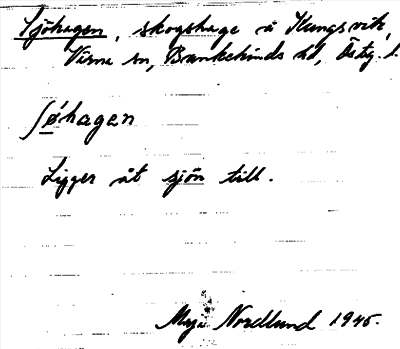 Sjöhagen, skogshage å Kungsvik,
Viṣna sn, Bankekinds hd, Östg. l.
ʃǿhagen
Ligger åt sjön till.
Maja Nordlund 1945.